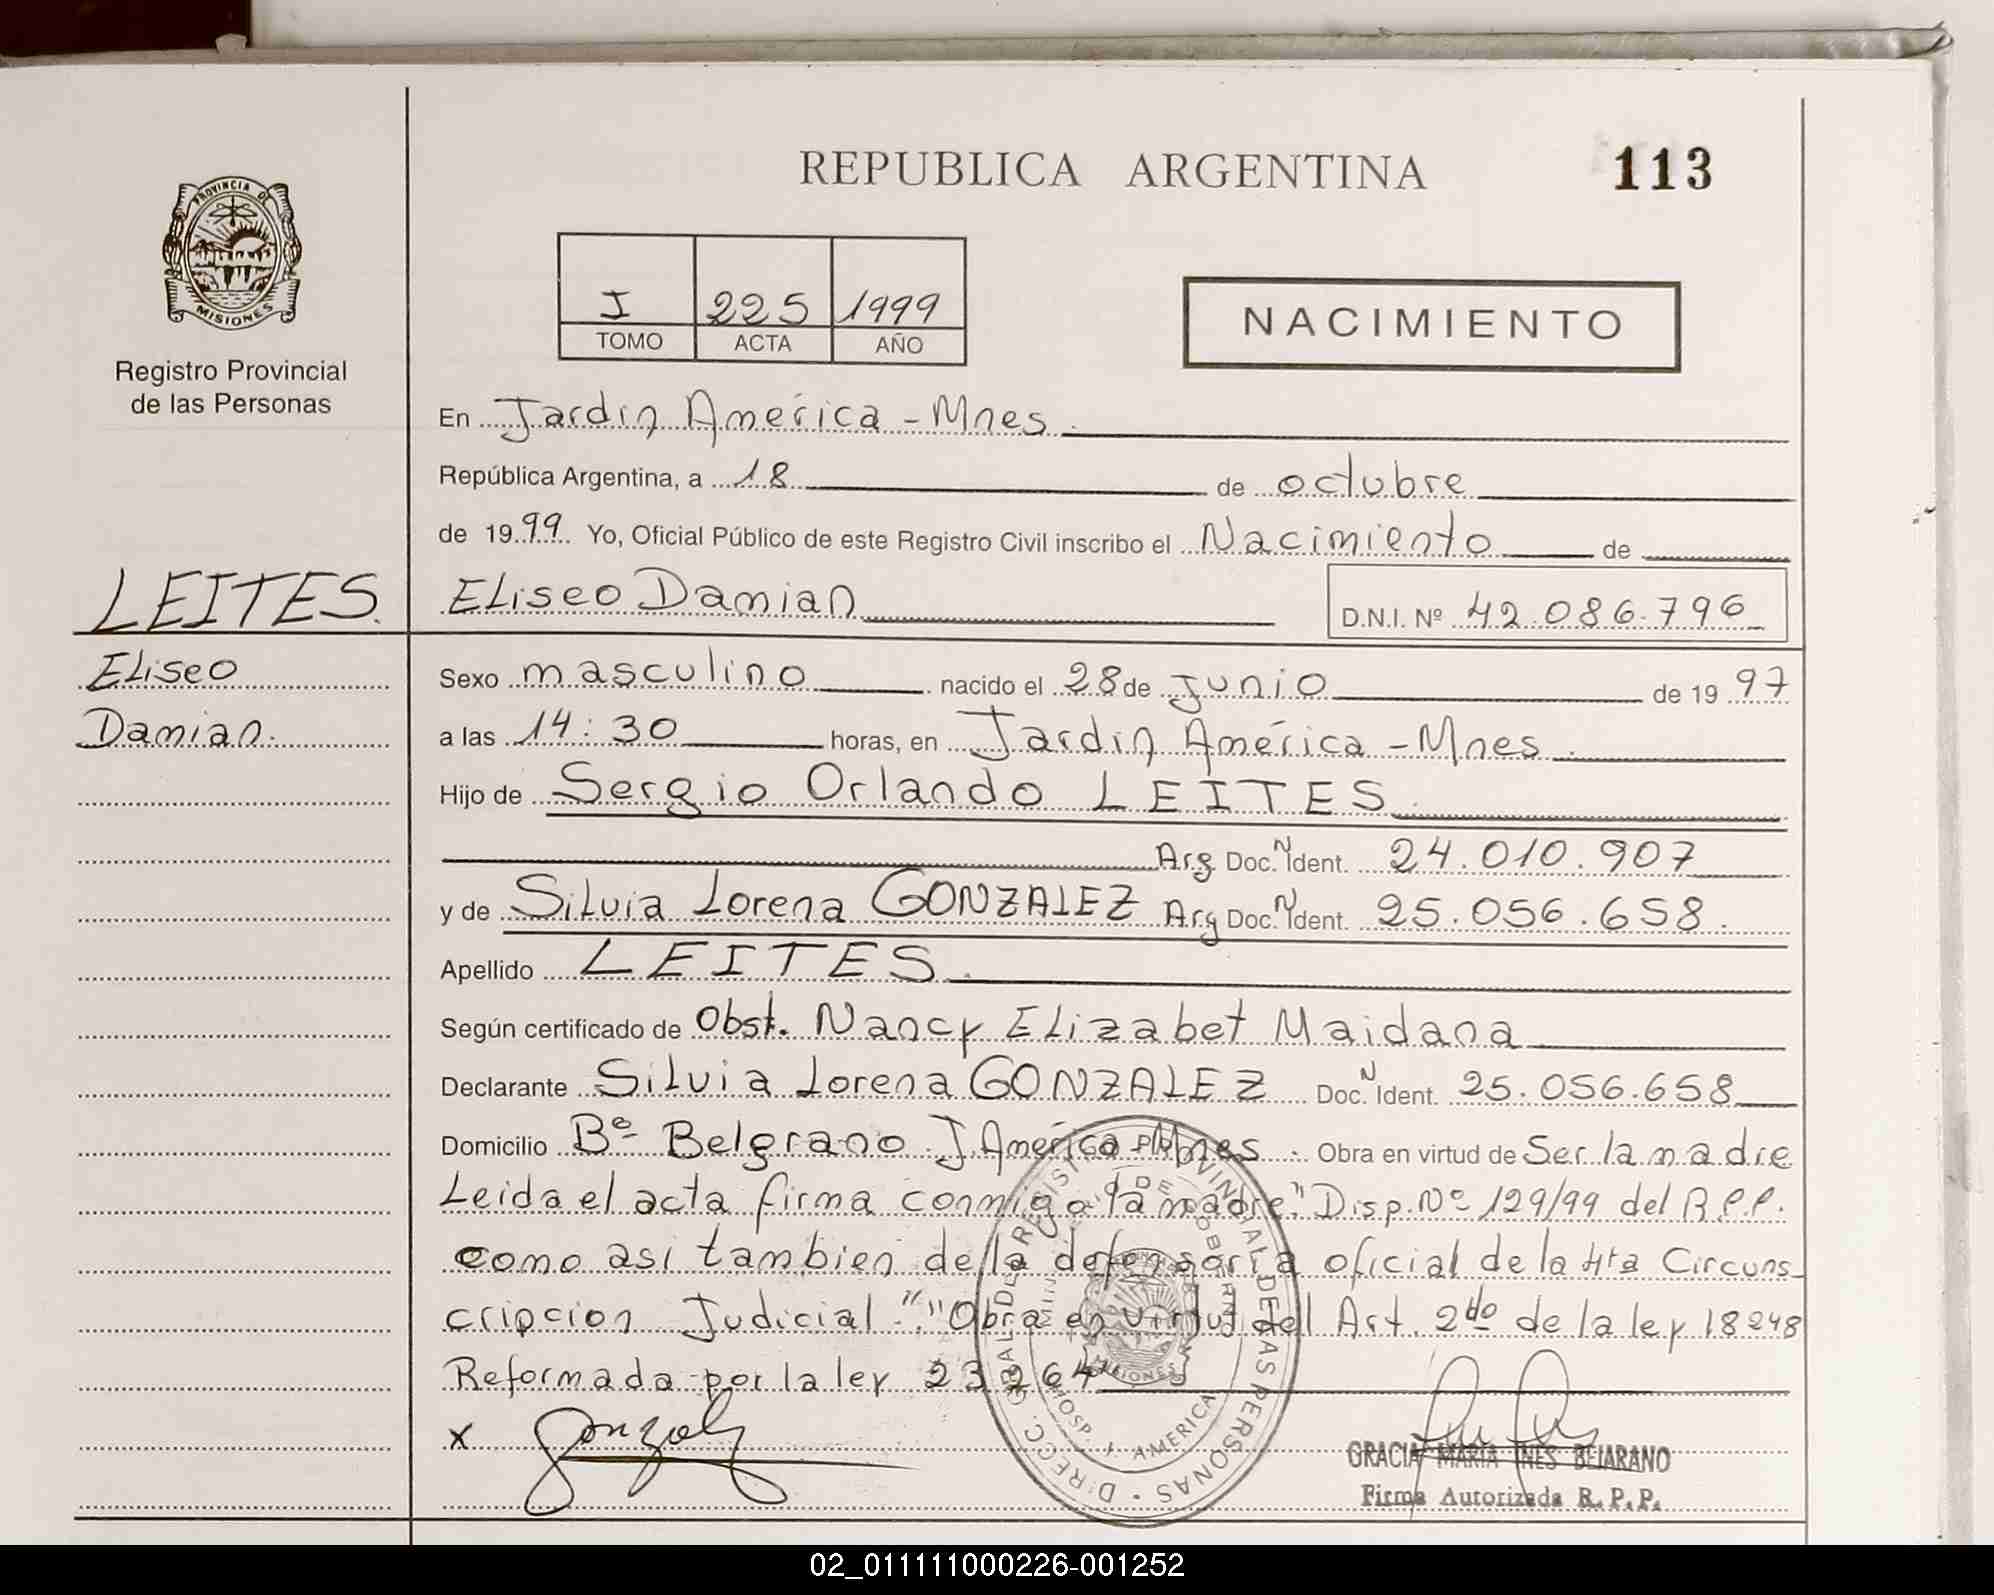 REPUBLICA ARGENTINA
113
PROVINCIA DE
MISIONES
Registro Provincial
de las Personas
I 225 1999
TOMO ACTA AÑO
NACIMIENTO
En Jardin América - Mnes.
República Argentina, a 18 de octubre
de 1999 Yo, Oficial Público de este Registro Civil inscribo el Nacimiento de
LEITES. Eliseo Damian D.N.I. Nº 42.086.796
Eliseo
Damian.
Sexo masculino nacido el 28 de Junio de 1997
a las 14:30 horas, en Jardin América - Mnes.
Hijo de Sergio Orlando LEITES
Arg Doc. N Ident. 24.010.907
y de Silvia Lorena GONZALEZ Arg Doc. N Ident. 25.056.658.
Apellido LEITES.
Según certificado de Obst. Nancy Elizabet Maidana
Declarante Silvia Lorena GONZALEZ Doc. N Ident. 25.056.658
Domicilio Bº Belgrano J. América - Mnes. Obra en virtud de Ser la madre
Leida el acta firma conmigo la madre." Disp. Nº 129/99 del R.P.P.
como asi tambien de la defensoria oficial de la 4ta Circuns
cripcion Judicial"."Obra en virtud del Art. 2do de la ley 18248
Reformada por la ley 23264"
x Gonzalez
DIRECC. GRAL DE REGISTRO PROVINCIAL DE LAS PERSONAS
HOSP. J. AMERICA
GRACIA MARIA INES BEJARANO
Firma Autorizada R.P.P.
02_011111000226-001252